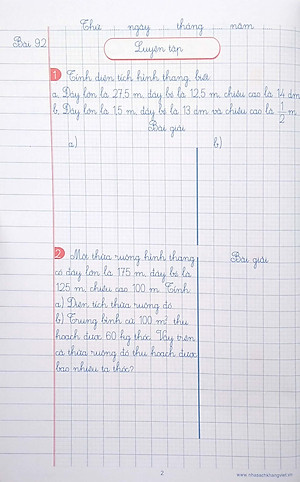 Thứ ngày tháng năm
Bài 92
Luyện tập
1 Tính diện tích hình thang, biết:
a. Đáy lớn là 27,5 m, đáy bé là 12,5 m, chiều cao là 14 dm
b. Đáy lớn là 1,5 m, đáy bé là 13 dm và chiều cao là 1/2 m
Bài giải
a) b)
2 Một thửa ruộng hình thang
có đáy lớn là 175 m, đáy bé là
125 m, chiều cao 100 m. Tính:
a) Diện tích thửa ruộng đó.
b) Trung bình cứ 100 m² thu
hoạch được 60 kg thóc. Vậy trên
cả thửa ruộng đó thu hoạch được
bao nhiêu tạ thóc?
Bài giải
2
www.nhasachtanangviet.vn